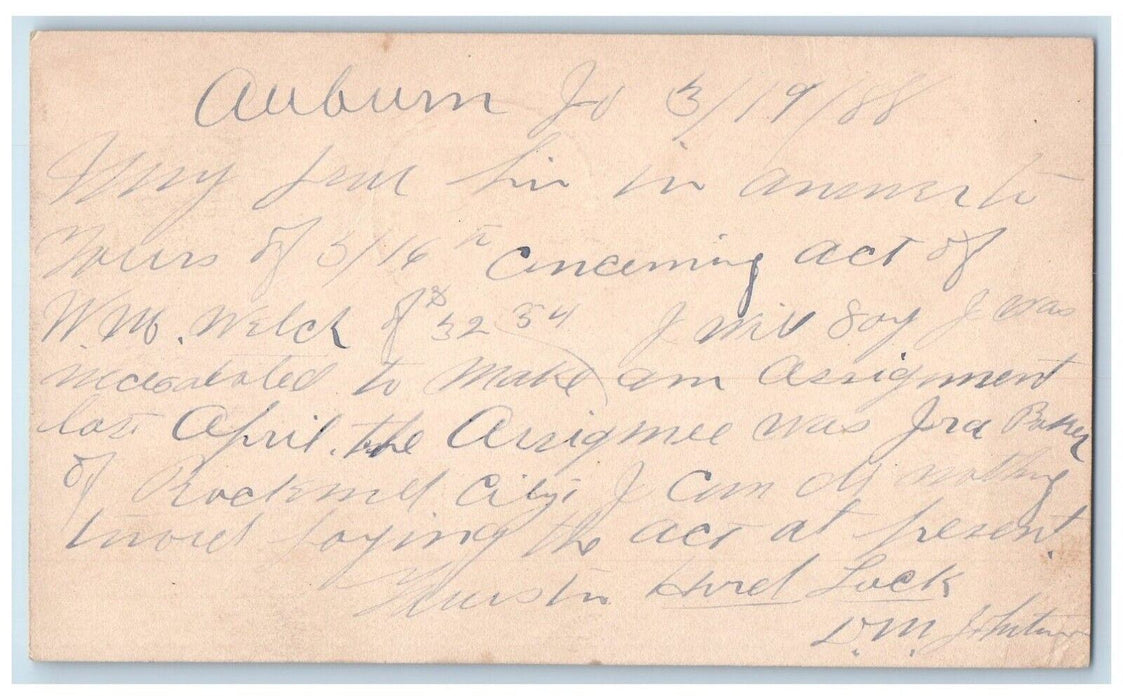 Auburn Io 3/19/88
Very dear Sir in answer to
Yours of 3/16th Concerning act of
W.M. Welch of $32 54 I will Say I was
necesatated to Make am Assignment
last April, the Assignee was Ira Baker
of Rockwell City I Can do nothing
toward paying the act at present
Yours in Hard Luck
D.M. Johnston